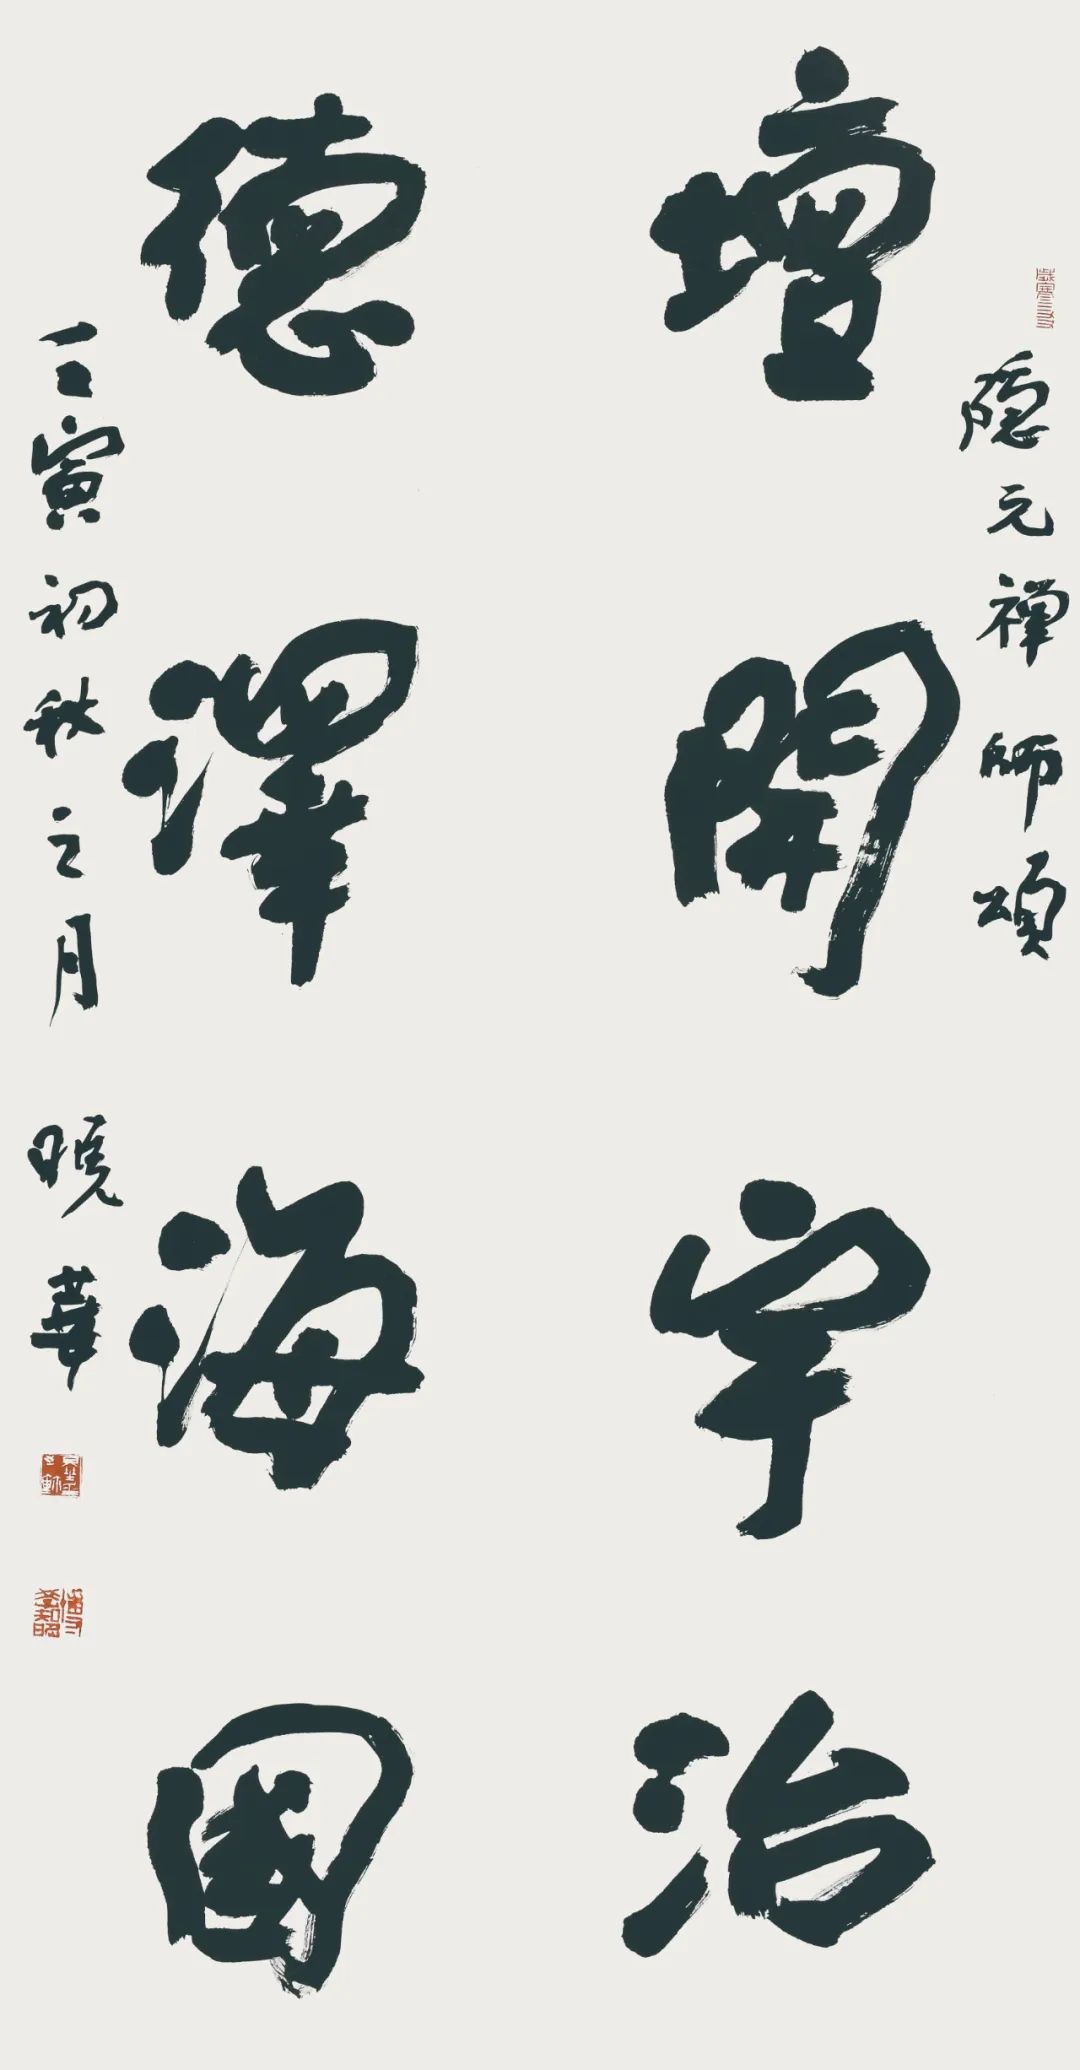 歲寒三友
隱元禪師頌
壇開宇治
德澤海國
壬寅初秋之月 曉華